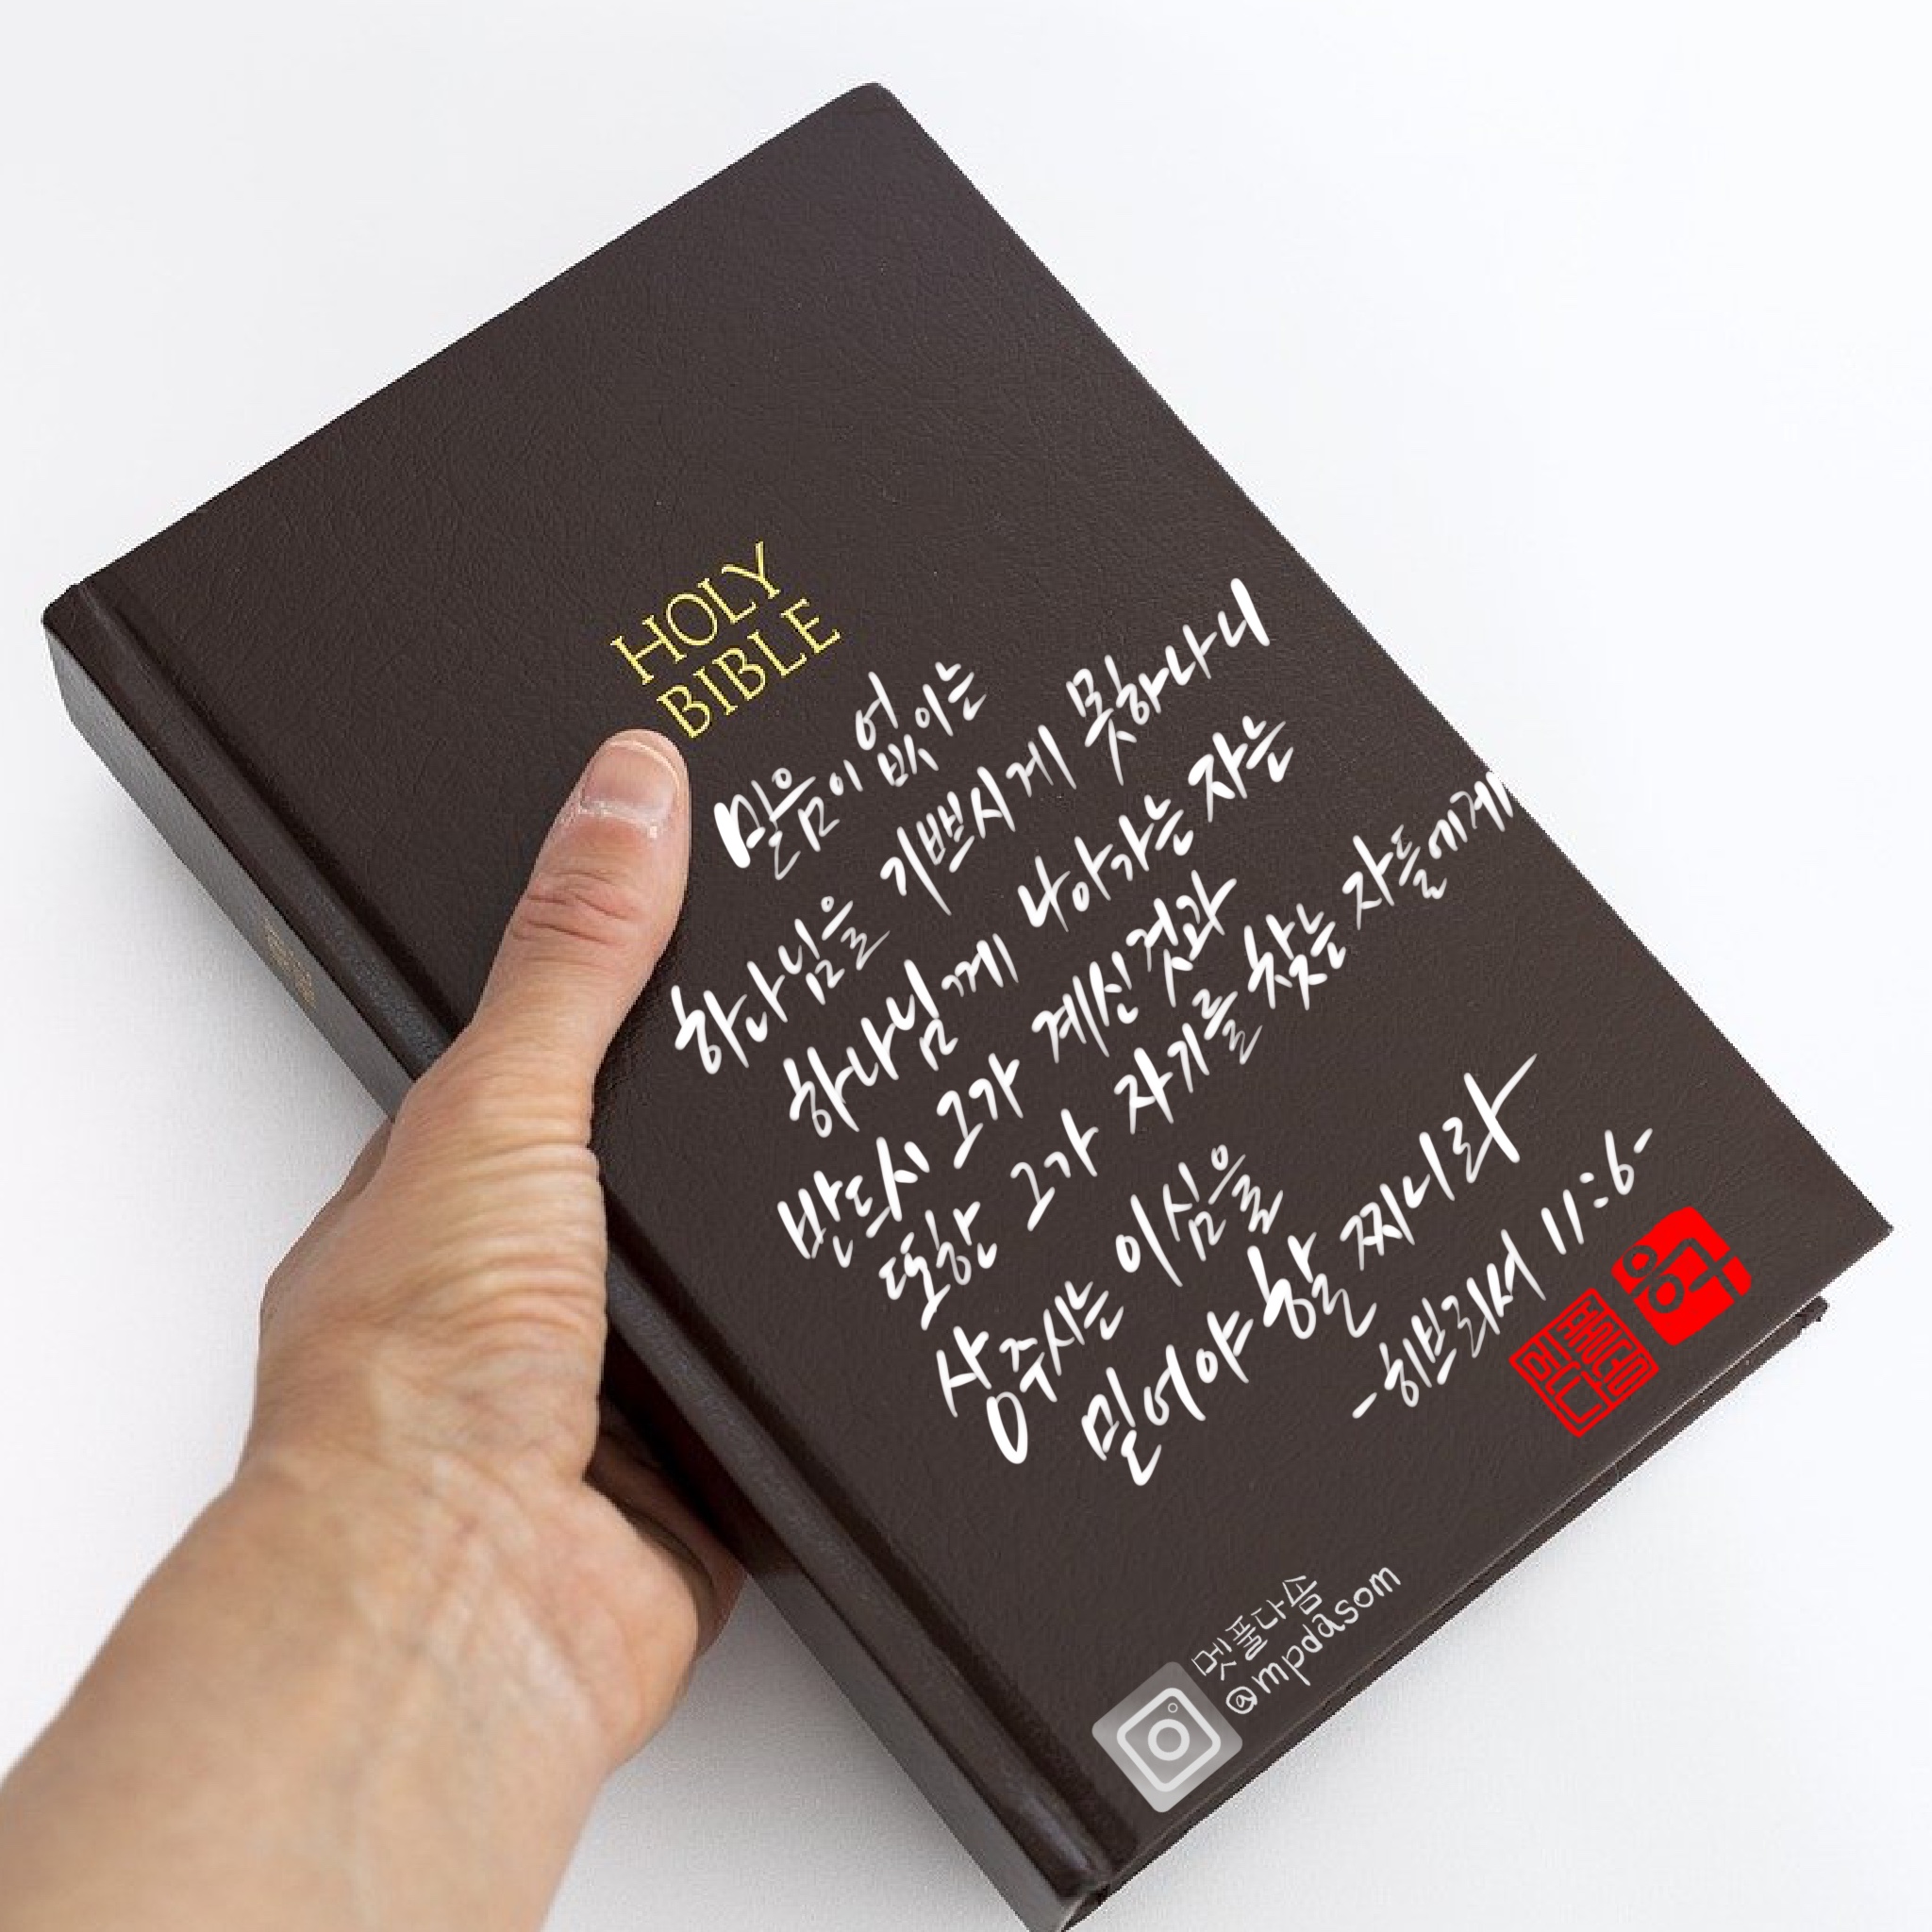 HOLY
BIBLE
믿음이 없이는
하나님을 기쁘시게 못하나니
하나님께 나아가는 자는
반드시 그가 계신 것과
또한 그가 자기를 찾는 자들에게
상주시는 이심을
믿어야 할 찌니라
-히브리서 11:6-
멋풀다솜
@mpdasom